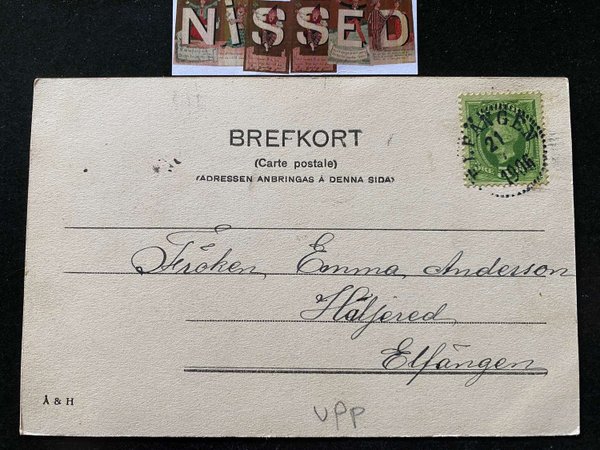 NiSSED
BREFKORT
(Carte postale)
(ADRESSEN ANBRINGAS Å DENNA SIDA)
ELFÄNGEN
21
1906
Fröken Emma Andersson
Häljered
Elfängen
Å & H
upp